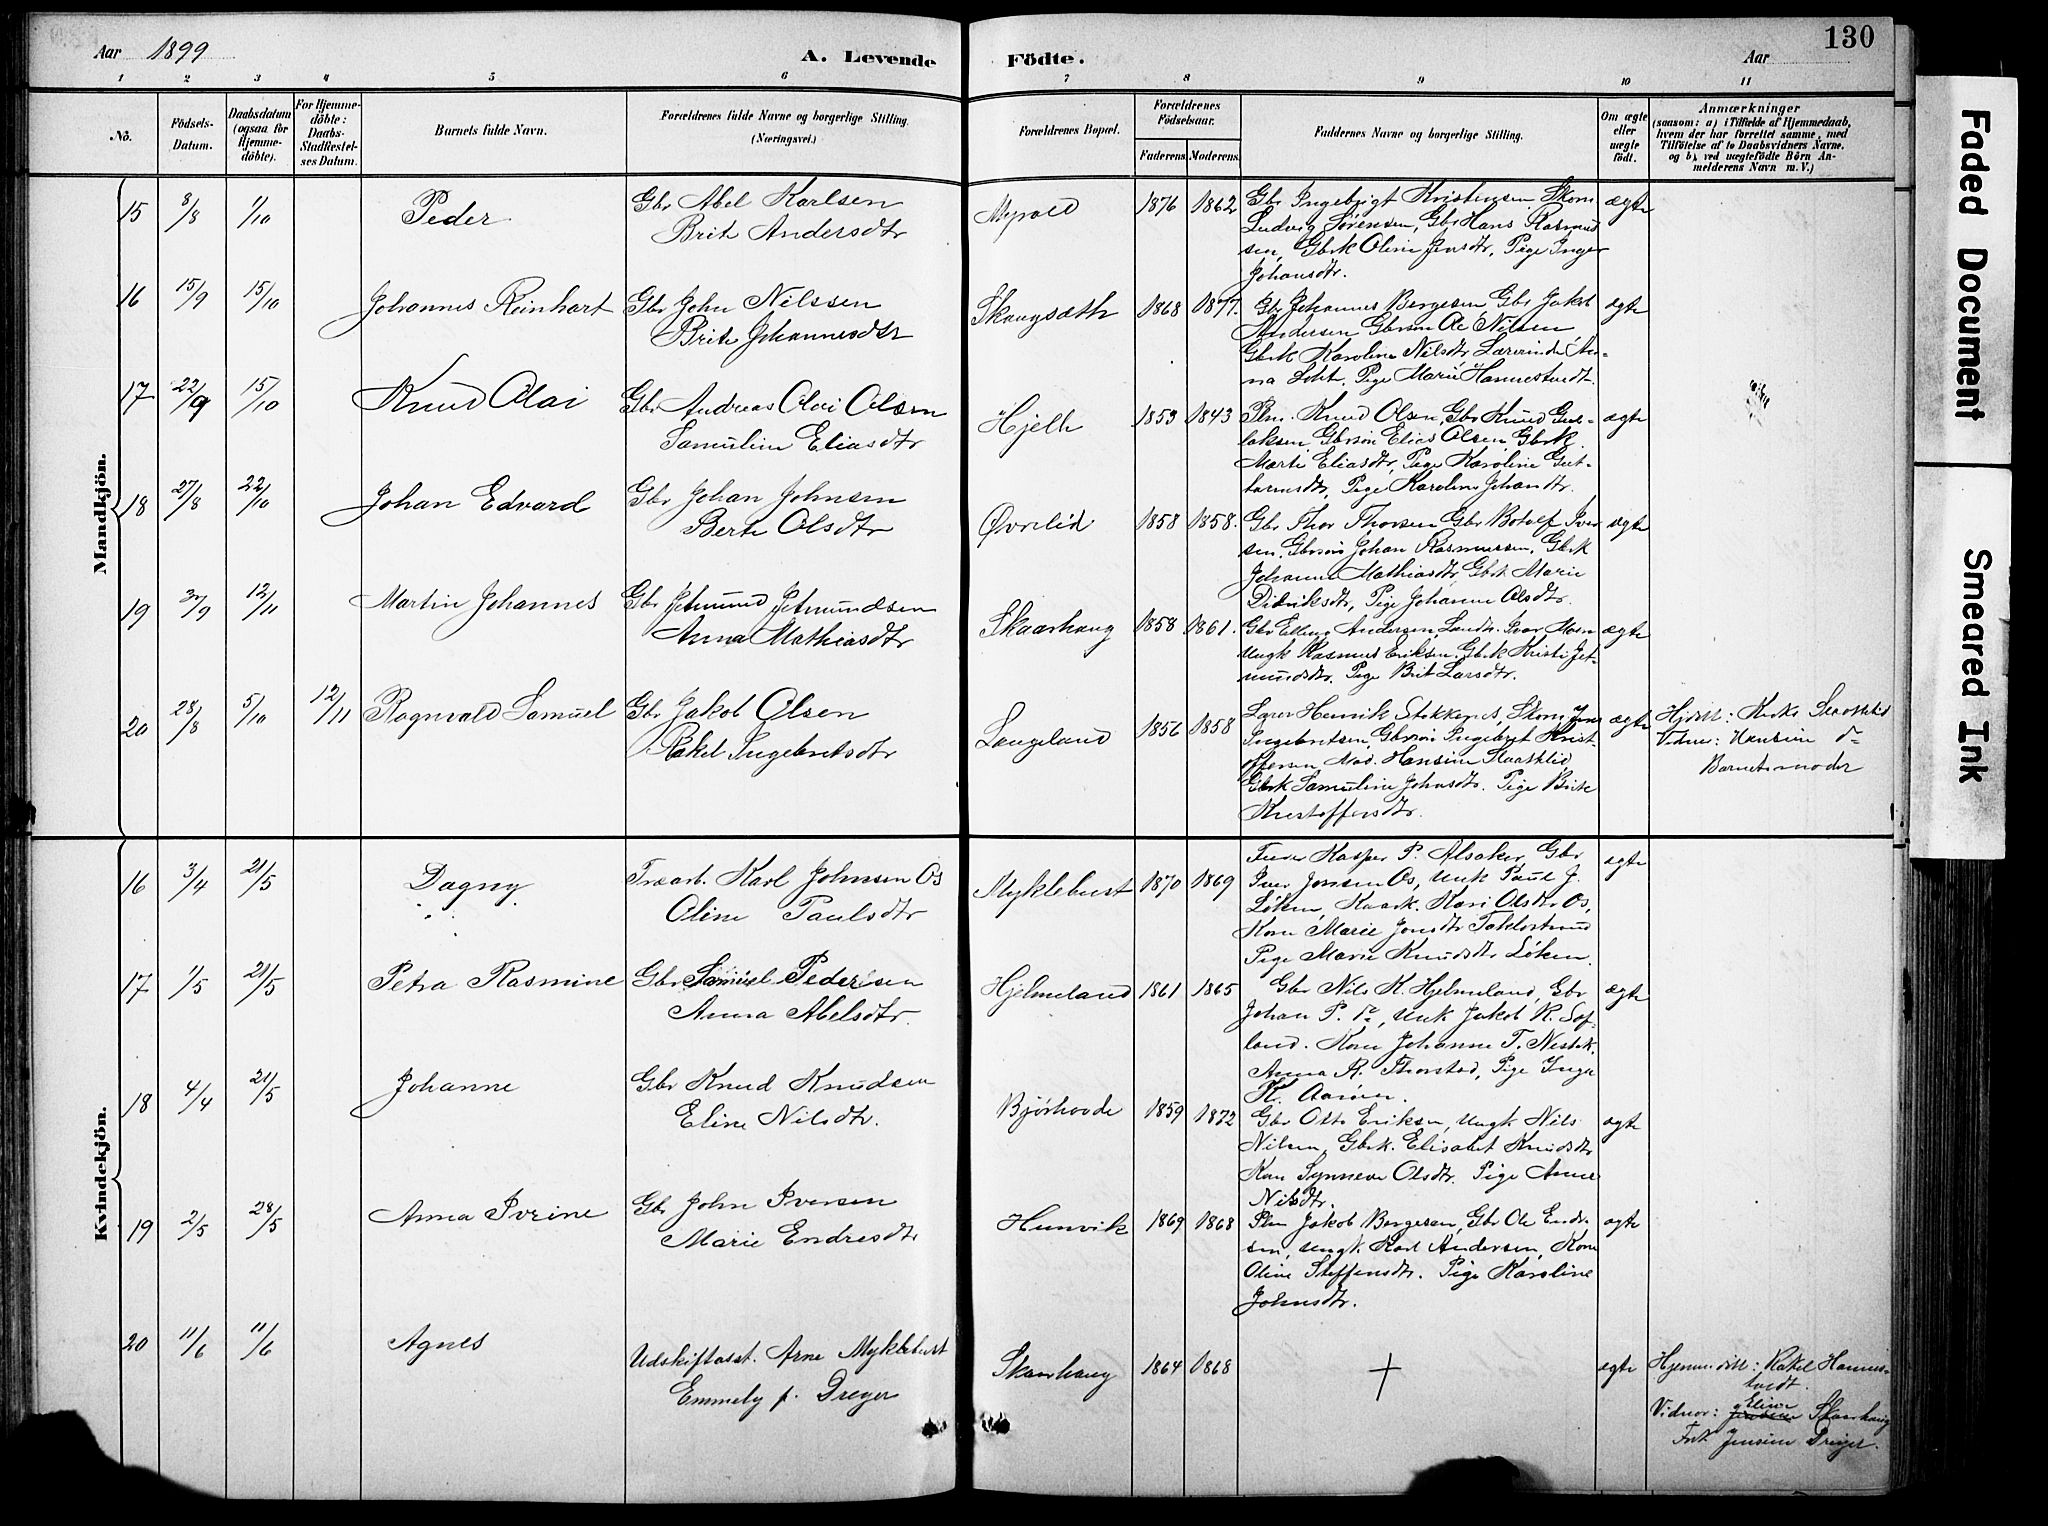 Aar 1899
A. Levende
Födte.
Aar
130
1 2 3 4 5 6 7 8 9 10 11
No.
Födsels-
Datum.
Daabsdatum
(ogsaa for
Hjemme-
döbte).
For Hjemme-
döbte:
Daabs-
Stadfæstel-
ses Datum.
Barnets fulde Navn.
Forældrenes fulde Navne og borgerlige Stilling.
(Næringsvei.)
Forældrenes Bopæl.
Forældrenes
Födselsaar.
Faderens. Moderens.
Faddernes Navne og borgerlige Stilling.
Om ægte
eller
uægte
födt.
Anmærkninger
(saasom: a) i Tilfælde af Hjemmedaab,
hvem der har forrettet samme, med
Tilföielse af to Daabsvidners Navne,
og b) ved uægtefödte Börn An-
melderens Navn m. V.)
Mandkjön.
15 8/8 1/10 Peder
Gbr Abel Karlsen
Brite Andersdtr
Myrold 1876 1862
Gbr Ingebrigt Kristensen, Skom
Ludvig Sørensen, Gbr Hans Rasmus
sen, Gbrk Oline Jensdtr, Pige Inger
Johansdtr.
ægte
16 15/9 15/10 Johannes Reinhart
Gbr John Nilssen
Brite Johannesdtr
Skougsæth 1868 1877.
Gbr Johannes Børgesen, Gbr Jakob
Andersen Gbrsøn Ole Nilsen
Gbrk Karoline Nilsdtr, Lærerinde An-
na Pige Marie Hannestvedt.
ægte
17 22/9 15/10 Knud Olai
Gbr Andreas Olai Olsen
Samuline Eliasdtr
Hjelle 1853 1843
Plm. Knud Olsen, Gbr Knud Gul-
laksen Gbrsøn Elias Olsen, Gbrk
Marte Eliasdtr, Pige Karoline Gut-
tormsdtr, Pige Karoline Johandtr.
ægte
18 27/8 22/10 Johan Edvard
Gbr Johan Johnsen
Berte Olsdtr
Øvrelid 1858 1858.
Gbr Thor Thorsen Gbr Botolf Iver
sen, Gbrsøn Johan Rasmussen, Gbrk
Johanne Mathiasdtr, Gbrk Marie
Didriksdtr, Pige Johanne Olsdtr.
ægte
19 30/9 12/11 Martin Johannes
Gbr Jetmund Jetmundsen
Anna Mathiasdtr
Skaarhaug 1858 1861.
Gbr Elling Andersen, Landh. Ivar Moen
Ungk Rasmus Eriksen, Gbrk Kristi Jet-
mundsdtr. Pige Brit Larsdtr.
ægte
20 28/8 5/10 12/11 Ragnvald Samuel
Gbr Jakob Olsen
Rakel Ingebretsdtr
Langeland 1856 1858
Lærer Henrik Stokkenes, Skom Jens
Ingebretsen, Gbrsøn Ingebret Krist-
offersen Mad. Hansine Raastelid,
Gbrk Samuline Johnsdtr. Pige Brite
Kristoffersdtr.
ægte
Vidne: Hansine do
Barnets moder
Kvindekjön.
16 3/4 21/5 Dagny
Træarb. Karl Johnsen Os
Oline Paulsdtr
Myklebust 1870 1869
Kasper P. Alsaker, Gbr
Iver Jonsen Os, Unk Paul J.
Løken, Kaark. Kari Olsdtr Os,
Kone Marie Jonsdtr Taklostrand
Pige Marie Knudsdtr Løken.
ægte
17 1/5 21/5 Petra Rasmine
Gbr Samuel Pedersen
Anna Abelsdtr.
Hjelmeland 1861 1865
Gbr Nils K. Hjelmeland, Gbr
Johan P. do, Unk Jakob R. Sof-
land. Kone Johanne T. Nestk.
Anna R. Thorstad, Pige Inga
K. Aarøen.
ægte
18 4/4 21/5 Johanne
Gbr Knud Knudsen
Eline Nilsdtr.
Bjørhovde 1859 1872
Gbr Otto Eriksen, Ungk Nils
Nilsen, Gbrk. Elisabet Knudsdtr
Kone Synneve Olsdtr. Pige Anne
Nilsdtr.
ægte
19 2/5 28/5 Anna Ivrine
Gbr John Iversen
Marie Endresdtr
Hunvik 1869 1868
Plm Jakob Børgesen, Gbr Ole Endr-
sen, Ungk. Karl Andersen, Kone
Oline Steffensdtr. Pige Karoline
Johnsdtr.
ægte
20 11/6 11/6 Agnes
Udskiftasst. Arne Myklebust
Emmely f. Dreyer
Skaarhaug 1864 1868
†
ægte
Hjemmedøbt: Rakel Hannes-
tvedt.
Eline
Vidner: Skaarhaug
Frk Jensine Dreyer.
Faded Document
Smeared Ink